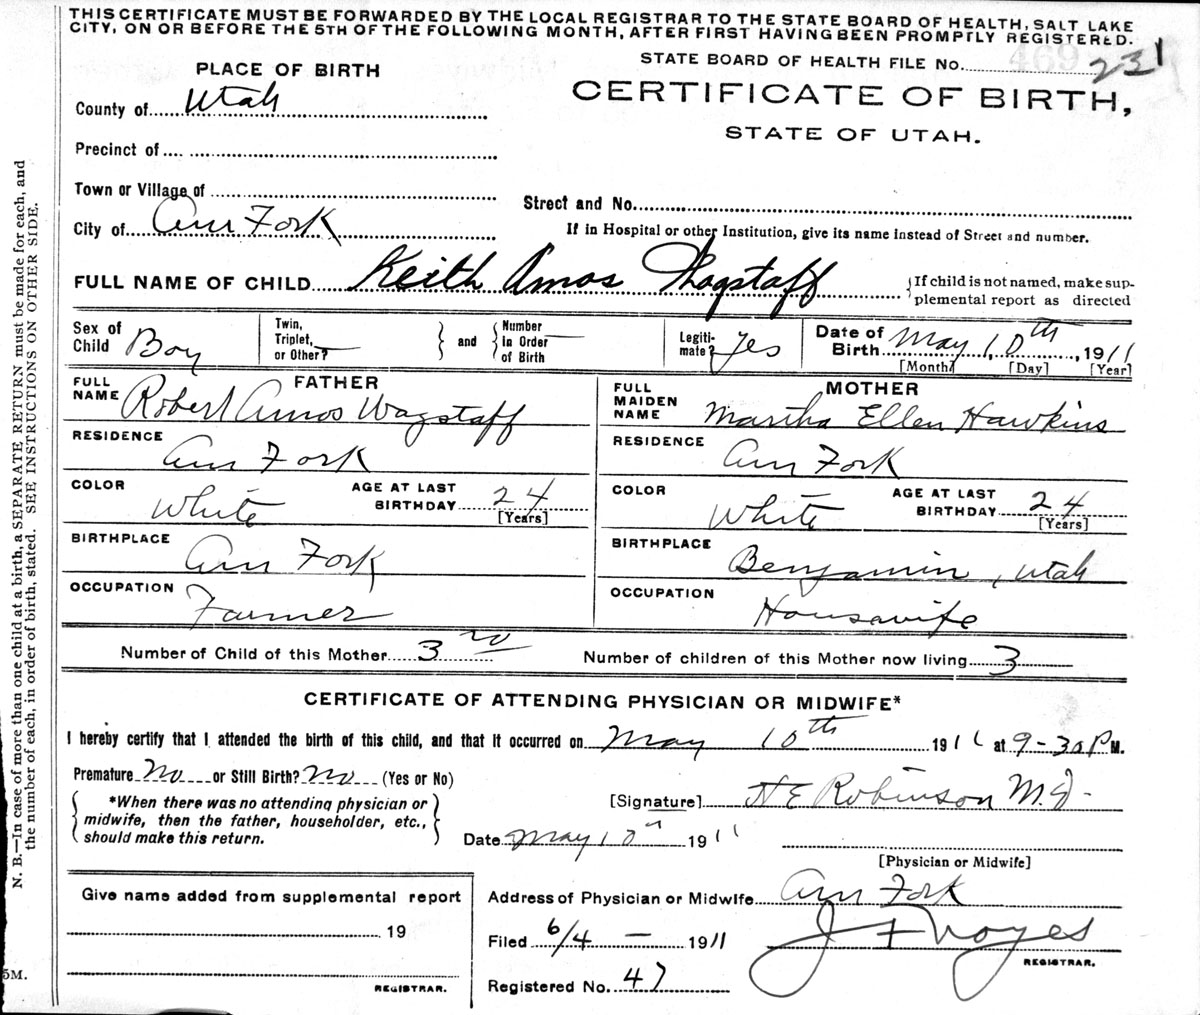 THIS CERTIFICATE MUST BE FORWARDED BY THE LOCAL REGISTRAR TO THE STATE BOARD OF HEALTH, SALT LAKE
CITY, ON OR BEFORE THE 5TH OF THE FOLLOWING MONTH, AFTER FIRST HAVING BEEN PROMPTLY REGISTERED.
STATE BOARD OF HEALTH FILE No. 469 231
PLACE OF BIRTH
CERTIFICATE OF BIRTH,
STATE OF UTAH.
County of Utah
Precinct of
Town or Village of
Street and No.
City of Am Fork
If in Hospital or other Institution, give its name instead of Street and number.
FULL NAME OF CHILD Keith Amos Wagstaff
{If child is not named, make sup-
plemental report as directed
Sex of Child Boy
Twin, Triplet, or Other? —
} and { Number in Order of Birth —
Legiti-mate? Yes
Date of Birth May 10th, 1911
[Month] [Day] [Year]
FATHER
FULL NAME Robert Amos Wagstaff
RESIDENCE Am Fork
COLOR White AGE AT LAST BIRTHDAY 24 [Years]
BIRTHPLACE Am Fork
OCCUPATION Farmer
MOTHER
FULL MAIDEN NAME Martha Ellen Hawkins
RESIDENCE Am Fork
COLOR White AGE AT LAST BIRTHDAY 24 [Years]
BIRTHPLACE Benjamin, Utah
OCCUPATION Housewife
Number of Child of this Mother 3 Number of children of this Mother now living 3
CERTIFICATE OF ATTENDING PHYSICIAN OR MIDWIFE*
I hereby certify that I attended the birth of this child, and that it occurred on May 10th 1911 at 9-30 P M.
Premature No or Still Birth? No (Yes or No)
{ *When there was no attending physician or
midwife, then the father, householder, etc.,
should make this return. }
[Signature] H E Robinson M.D.
Date May 10th 1911
[Physician or Midwife]
Give name added from supplemental report
19
REGISTRAR.
Address of Physician or Midwife Am Fork
Filed 6/4 — 1911
J F Noyes
REGISTRAR.
Registered No. 47
N. B.—In case of more than one child at a birth, a SEPARATE RETURN must be made for each, and
the number of each, in order of birth, stated. SEE INSTRUCTIONS ON OTHER SIDE.
5M.